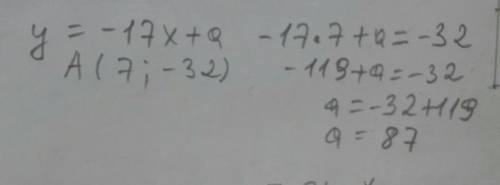 y = -17x+a
A(7; -32)
-17·7+a=-32
-119+a=-32
a=-32+119
a = 87